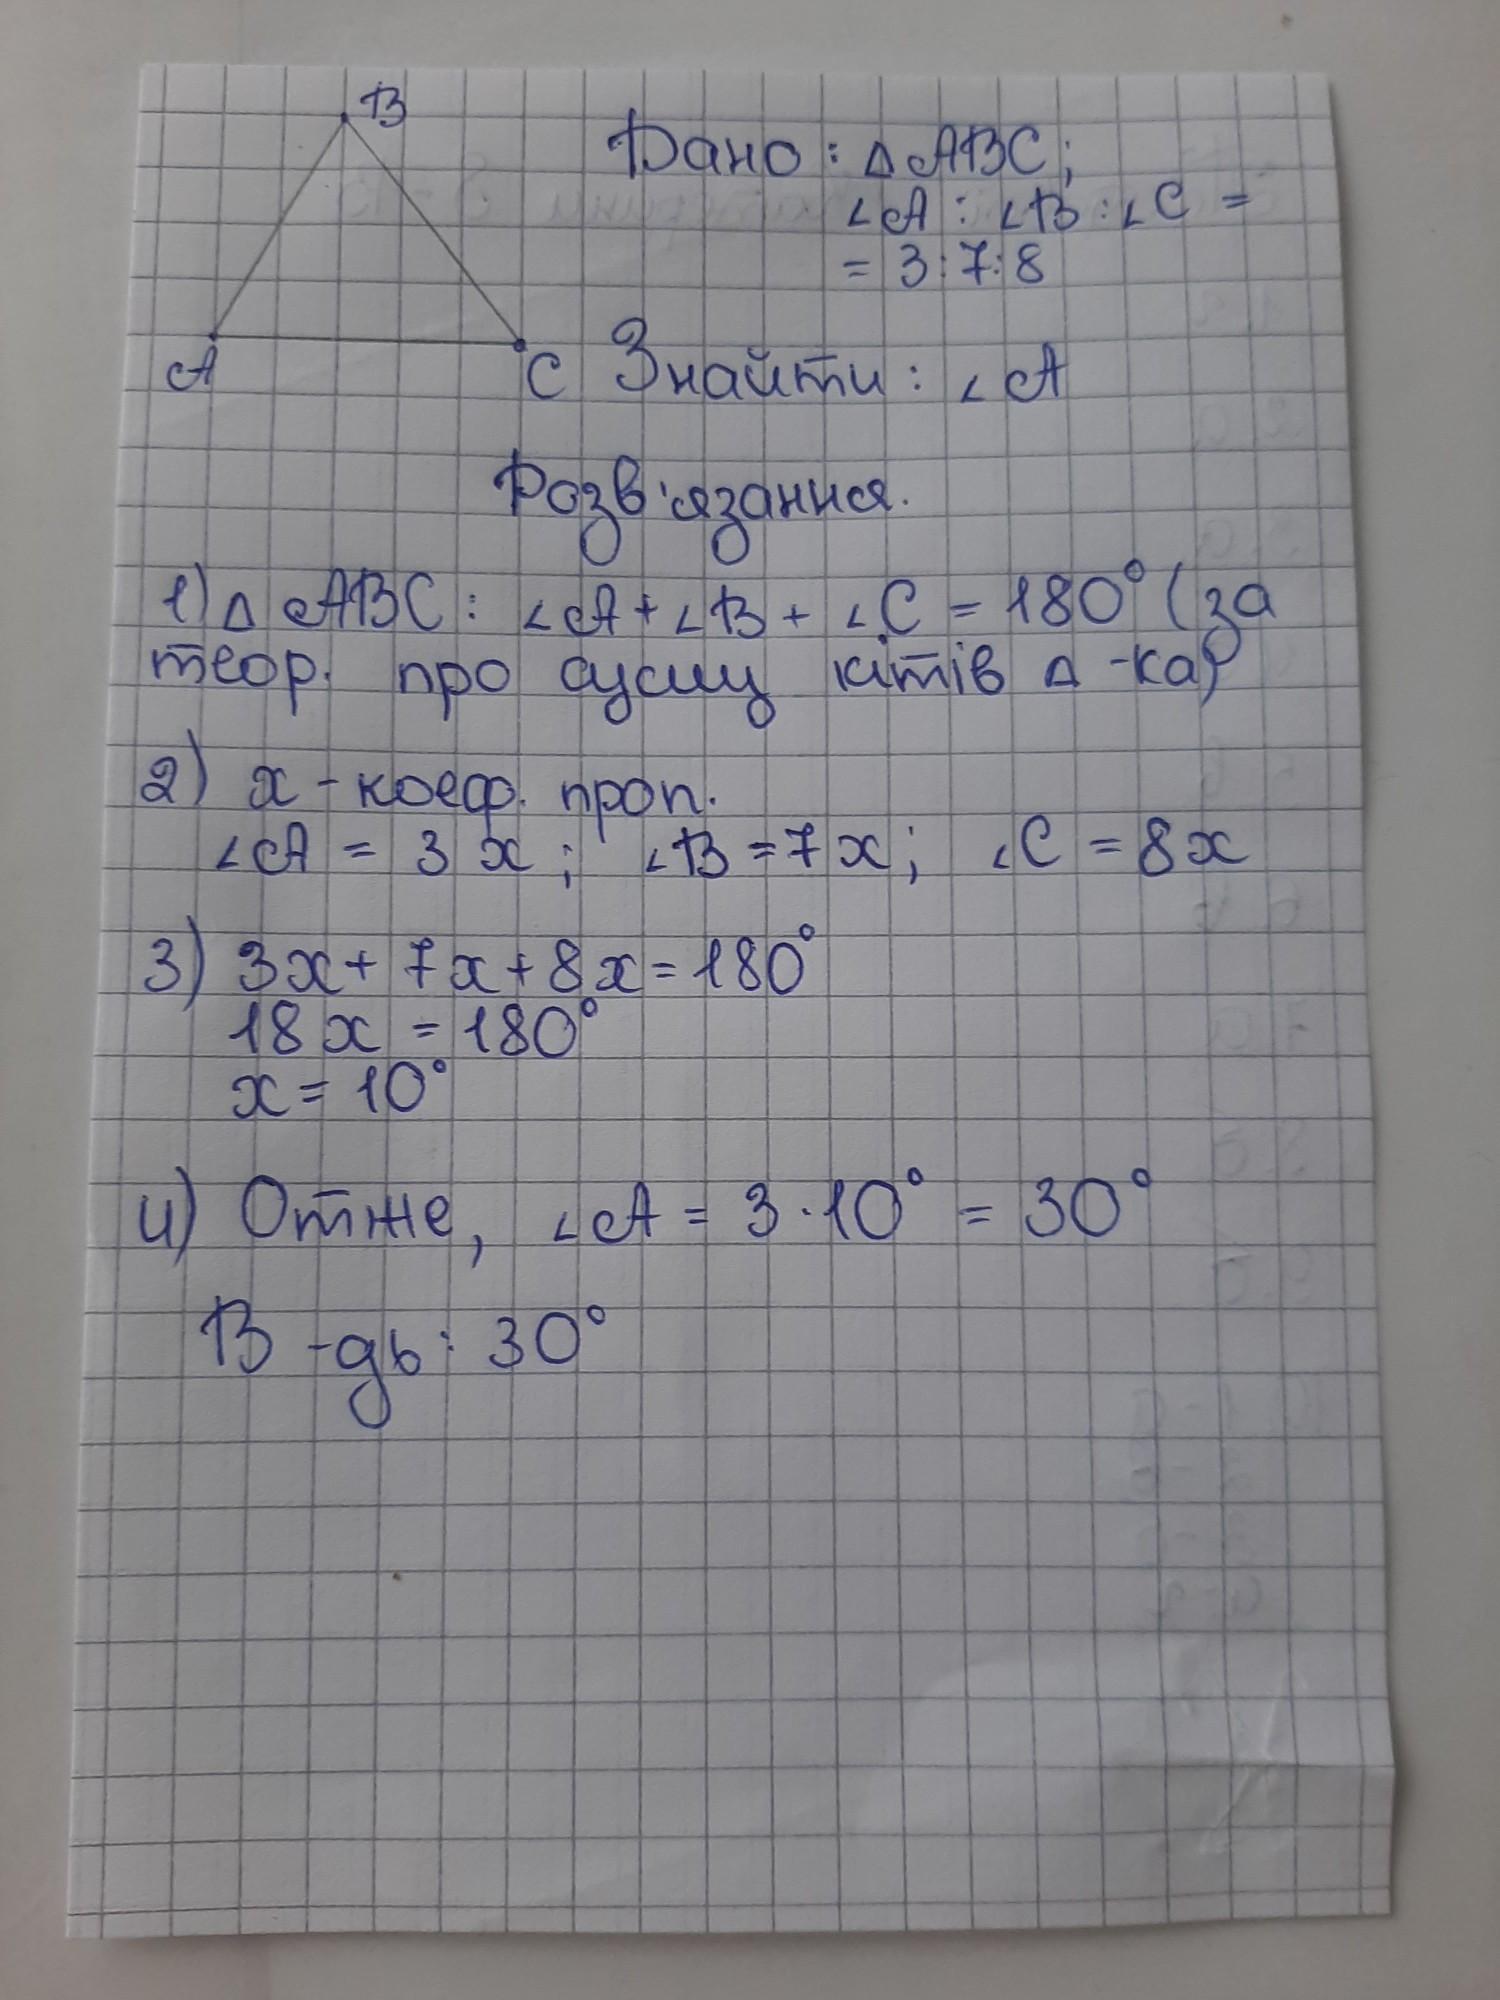 B
Дано: △ABC;
∠A : ∠B : ∠C =
= 3:7:8
A
C
Знайти: ∠A
Розв'язання.
1) △ABC: ∠A + ∠B + ∠C = 180° (за
теор. про суму кітів △-ка)
2) x - коеф. проп.
∠A = 3x; ∠B = 7x; ∠C = 8x
3) 3x + 7x + 8x = 180°
18x = 180°
x = 10°
4) Отже, ∠A = 3·10° = 30°
В-дь: 30°